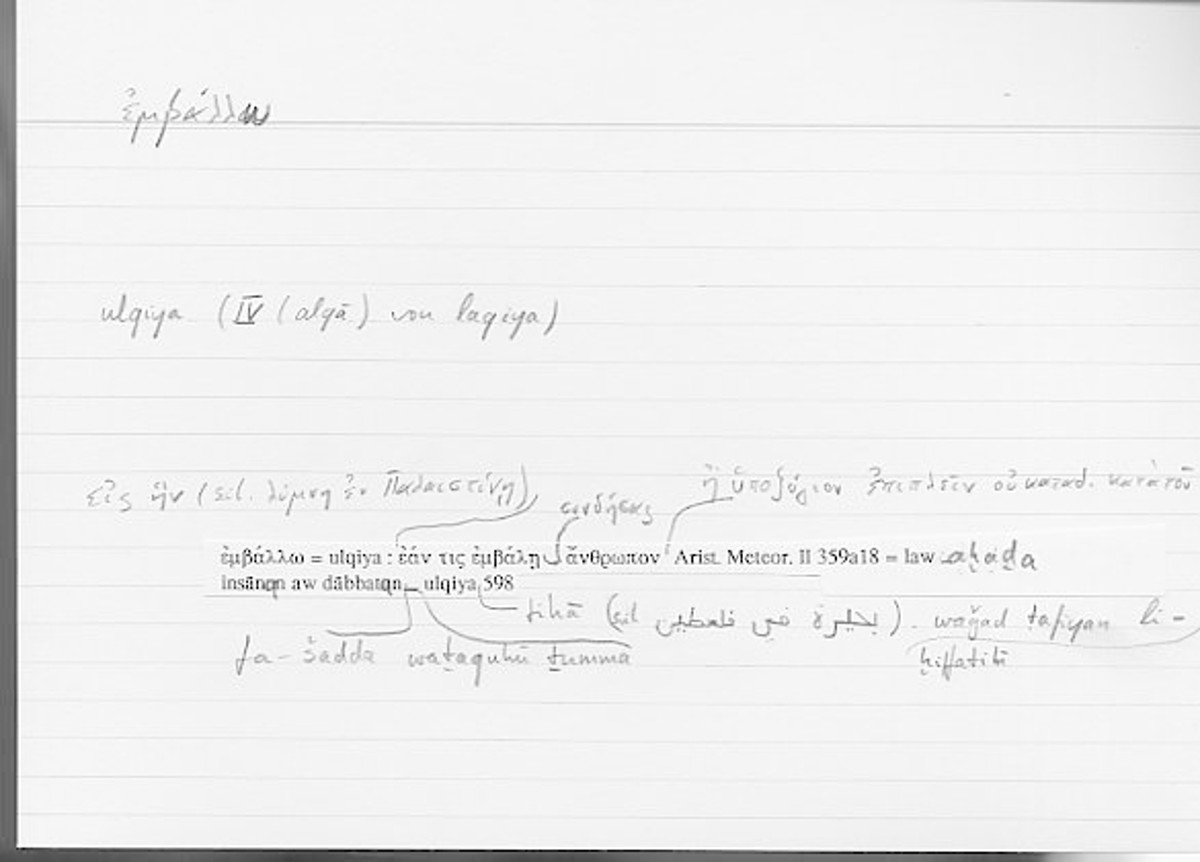 ἐμβάλλω
ulqiya (IV (alqā) von laqiya)
εἰς ἣν (scil. λίμνη ἐν Παλαιστίνῃ) συνδήσας ἢ ὑποζύγιον ἐπιπλεῖν οὐ καταδ. κατὰ τοῦ
ἐμβάλλω = ulqiya : ἐάν τις ἐμβάλῃ ἄνθρωπον Arist. Meteor. II 359a18 = law aḫaḏa
insānan aw dābbatan ulqiya 598
fīhā (scil بحيرة في فلسطين). waǧad ṭafiyan li-
fa-šadda waṯāquhū ṯumma ḫiffatihī